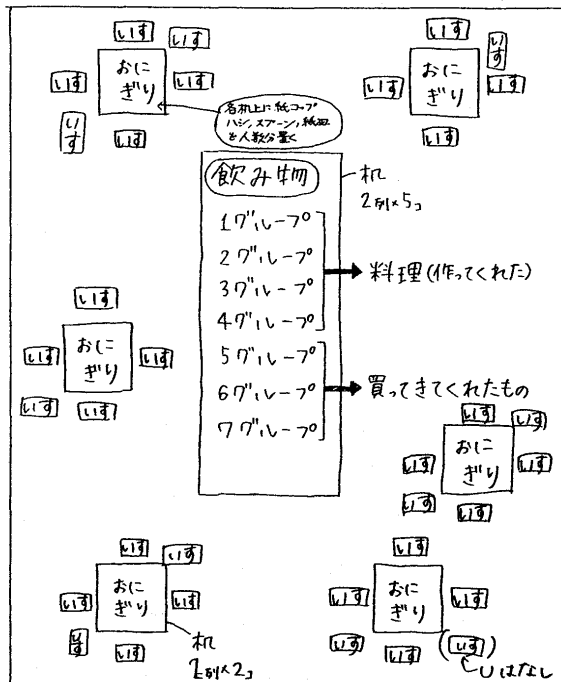 いす
いす
いす
おに
ぎり
いす
いす
いす
いす
いす
いす
おに
ぎり
いす
いす
各机上に紙コップ
ハシ、スプーン、紙皿
を人数分置く
飲み物
机
2列×5コ
1グループ
2グループ
3グループ
4グループ
料理(作ってくれた)
5グループ
6グループ
7グループ
買ってきてくれたもの
いす
いす
おに
ぎり
いす
いす
いす
いす
いす
いす
おに
ぎり
いす
いす
いす
いす
いす
いす
おに
ぎり
いす
いす
いす
机
いす
いす
おに
ぎり
いす
いす
いす
(いす)
Uはなし